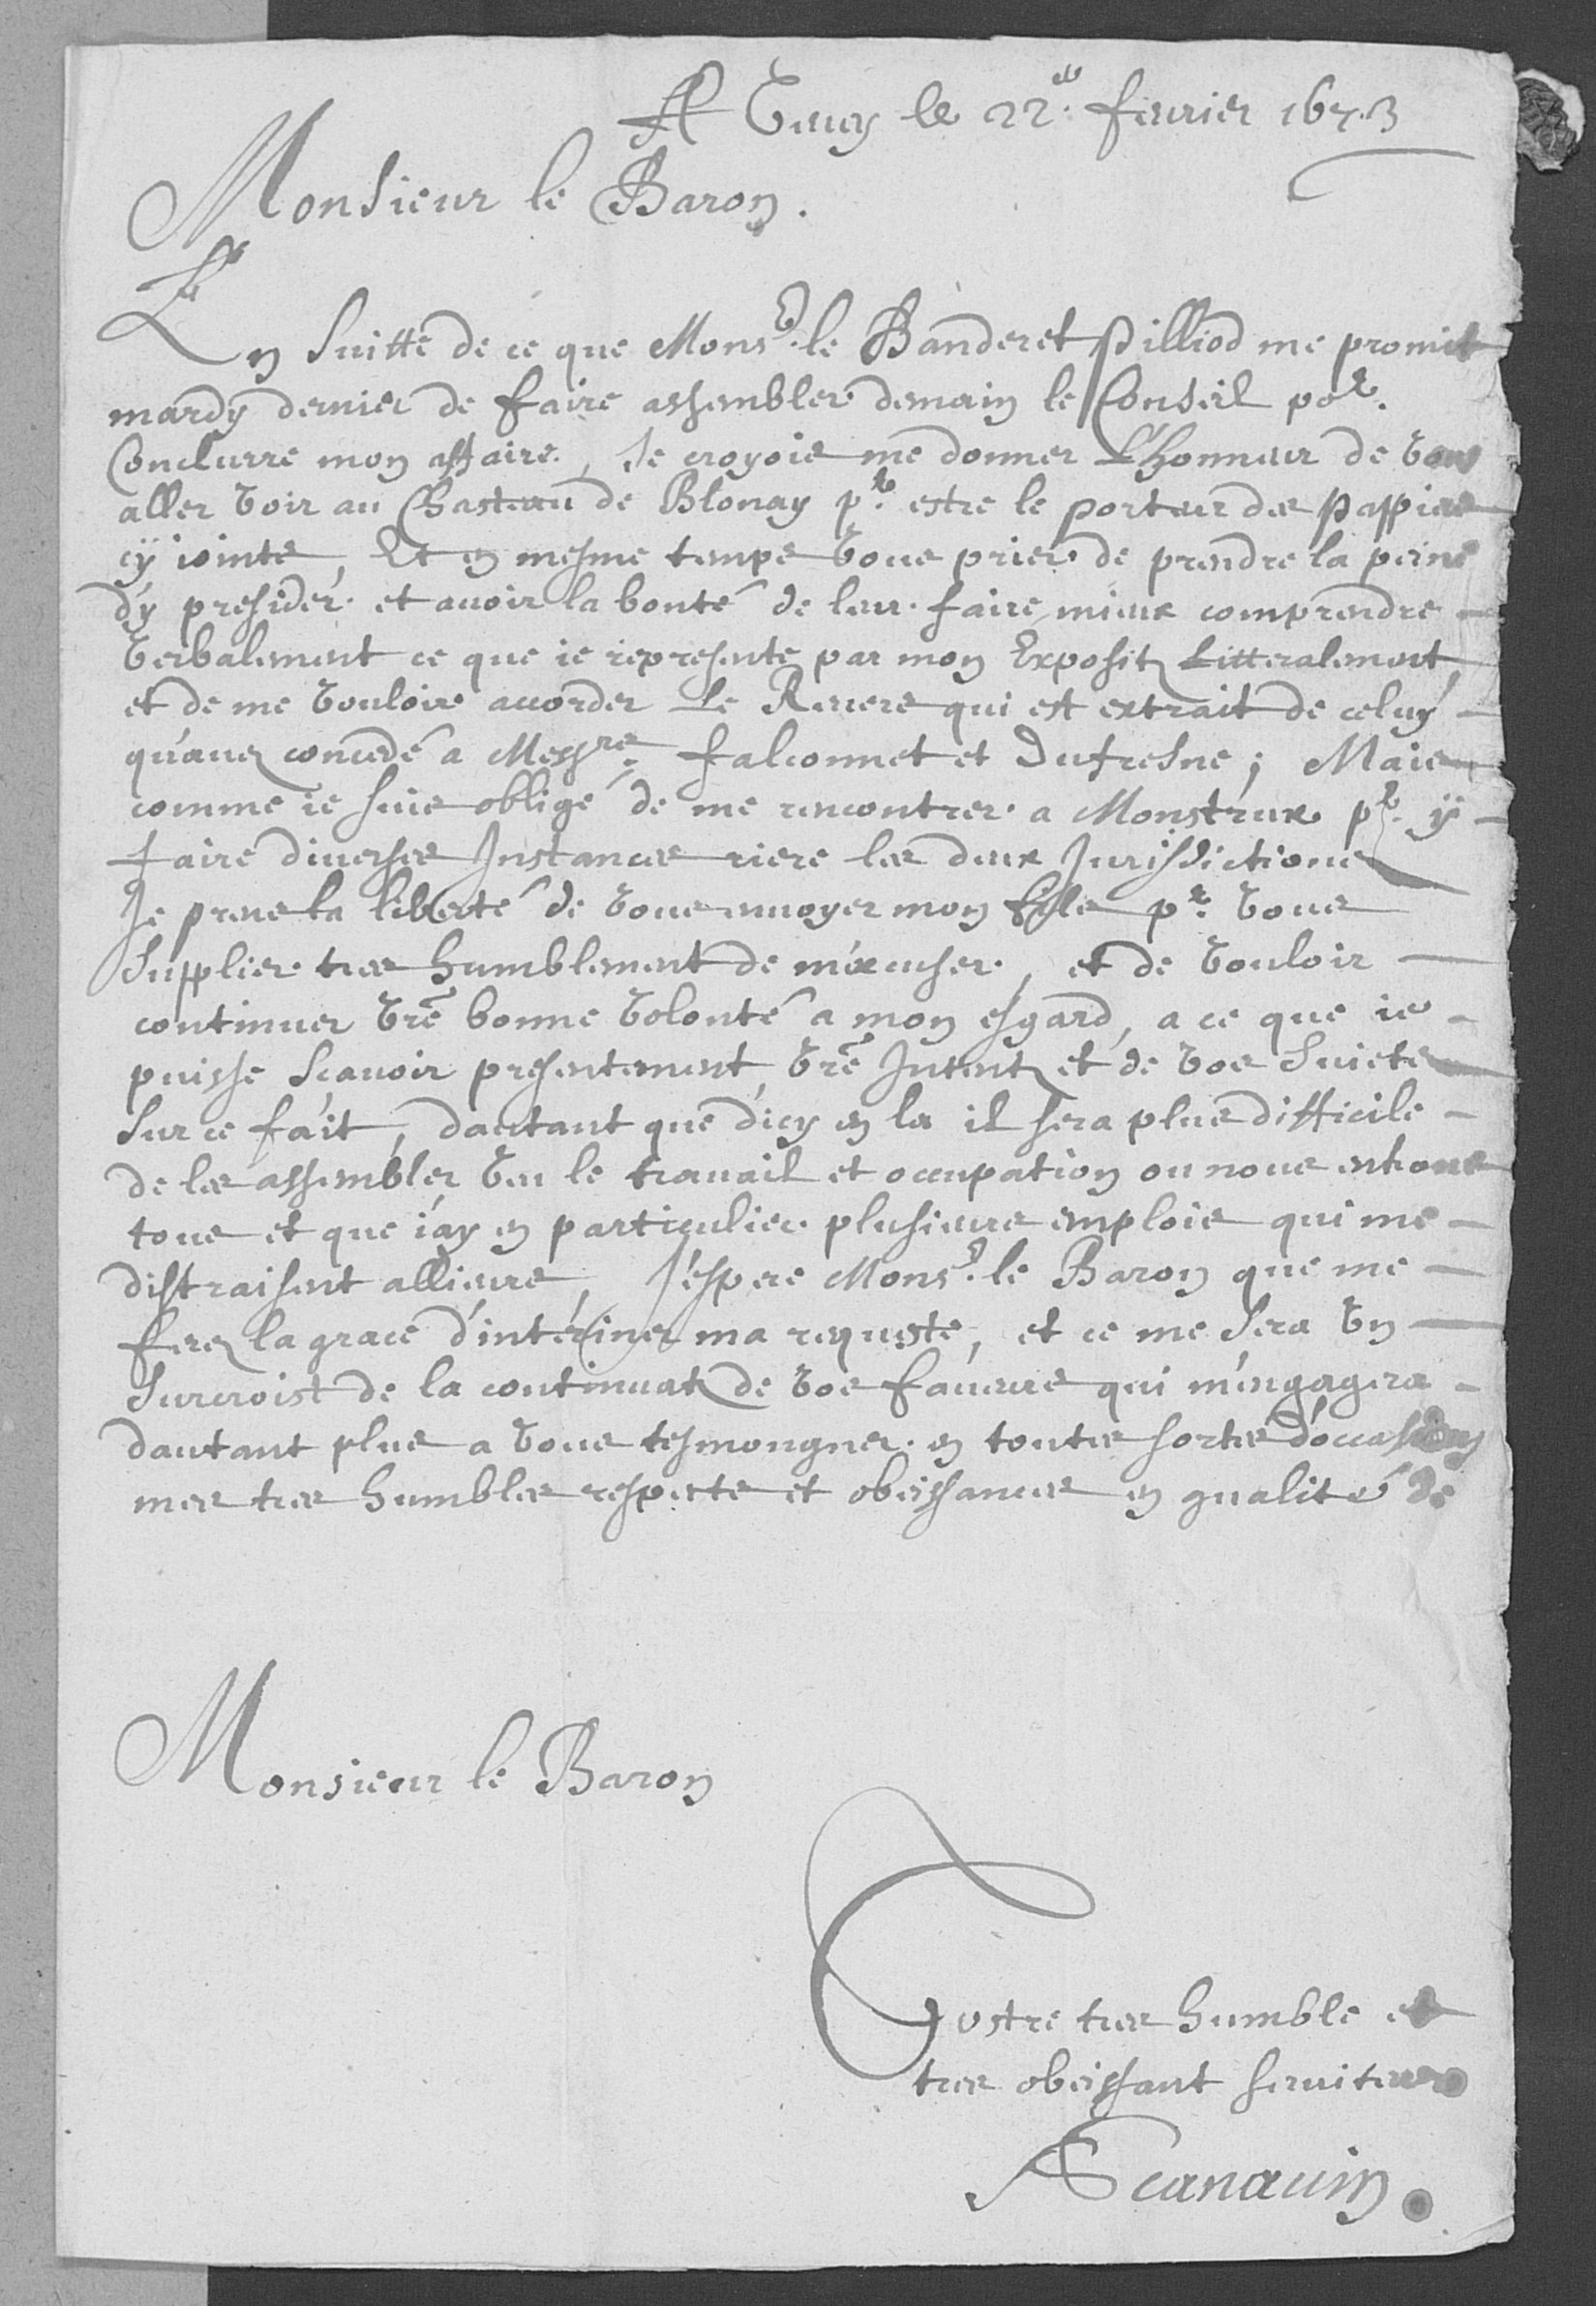 A Vevey le 22e. feurier 1673
Monsieur le Baron.
En suitte de ce que Monsr. le Banderet Pilliod me promit
mardy dernier de faire assembler demain le Conseil por.
Conclurre mon affaire, Je croyois me donner L'honneur de vous
aller voir au Chasteau de Blonay pr. estre le porteur des Pappiers
cÿ ioints, Et en mesme temps vous prier de prendre la peine
d'y presider et auoir la bonté de leur faire mieux comprendre
verbalement ce que ie represente par mon Exposit Litteralement,
et de me vouloir accorder Le Revers qui est extrait de celuÿ
qu'auez concedé a Messrs. falconnet et Dufresne; Mais
comme ie suis obligé de me rencontrer a Monstreux pr. ÿ
faire diuerses Instances riere les deux Jurisdictions
Je prens la liberté de vous enuoyer mon fils pr. vous
supplier tres humblement de m'excuser, et de vouloir
continuer vre bonne volonté a mon esgard, a ce que ie
puisse scauoir presentement vre Intent et de vos suiets
sur ce fait, dautant que d'icy en la il sera plus difficile
de les assembler veu le trauail et occupation ou nous entrons
tous et que i'ay en particulier plusieurs emplois qui me
distraisent allieurs, J'espere Monsr. le Baron que me
ferez la grace d'intériner ma requeste, et ce me sera vn
surcroist de la continuat de vos faueurs qui m'engagera
dautant plus a vous tesmongner en toutes sortes d'occasions
mes tres humbles respects et obeissances en qualité de
Monsieur le Baron
Vostre tres humble et
tres obeissant seruiteur
Scanauin